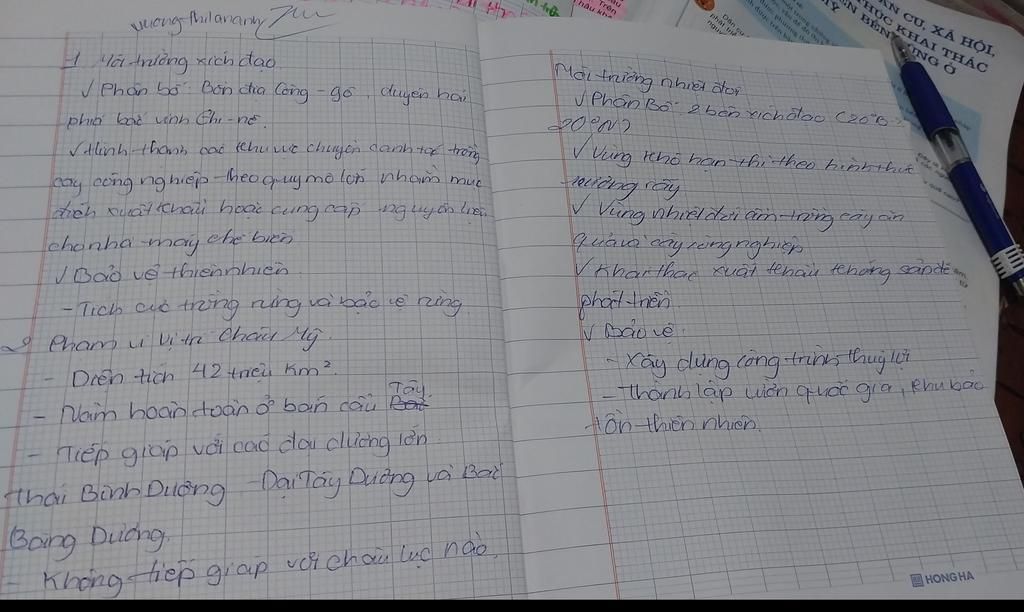 vuongthilananh
1 Môi trường xích đạo
√ Phân bố: Bồn địa Công-gô, duyên hải
phía bắc vịnh Ghi-nê.
√ Hình thành các khu vực chuyên canh tác trồng
cây công nghiệp theo quy mô lớn nhằm mục
đích xuất khẩu hoặc cung cấp nguyên liệu
cho nhà máy chế biến
√ Bảo vệ thiên nhiên
- Tích cực trồng rừng và bảo vệ rừng
2 Phạm vi vị trí Châu Mỹ.
- Diện tích 42 triệu km².
- Nằm hoàn toàn ở bán cầu Tây
- Tiếp giáp với các đại dương lớn
Thái Bình Dương Đại Tây Dương và Bắc
Băng Dương.
- Không tiếp giáp với châu lục nào.
Môi trường nhiệt đới
√ Phân Bố: 2 bên xích đạo (20°B-
20°N)
√ Vùng khô hạn thì theo hình thức
nương rẫy
√ Vùng nhiệt đới ẩm trồng cây ăn
quả và cây công nghiệp
√ Khai thác xuất khẩu khoáng sản để
phát triển
√ Bảo vệ
- Xây dựng công trình thuỷ lợi
- Thành lập vườn quốc gia, khu bảo
tồn thiên nhiên.
HONG HA
ÂN CƯ, XÃ HỘI,
THỨC KHAI THÁC
ÊN BỀN VỮNG Ở